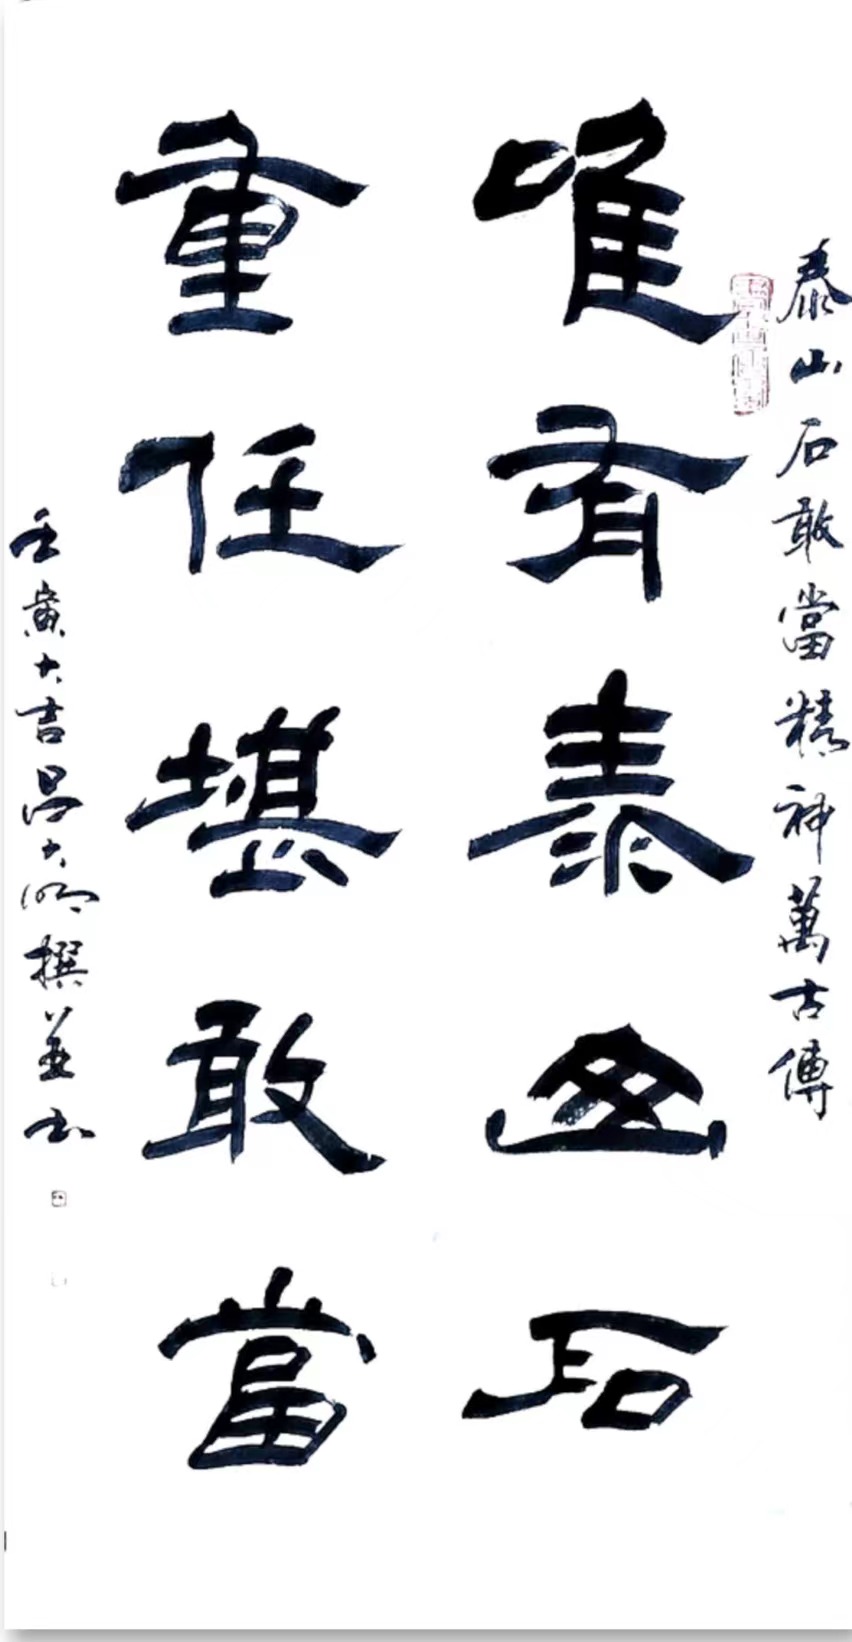 泰山石敢當精神萬古傳
唯有泰山石
重任堪敢當
壬寅大吉吕大明撰並书